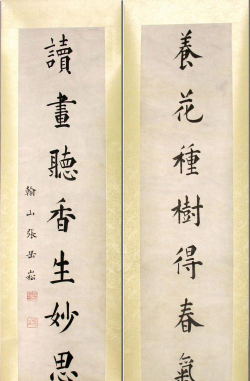 養花種樹得春氣
讀畫聽香生妙思
翰山張岳崧